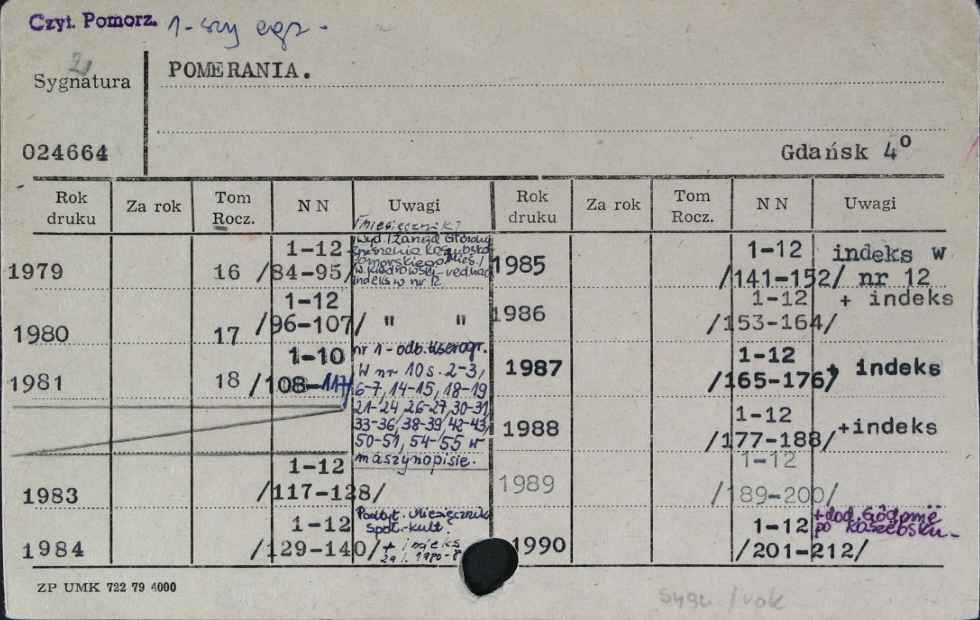 Czyt. Pomorz. 1-szy egz.
Sygnatura
POMERANIA.
024664
Gdańsk 4°
Rok druku Za rok Tom Rocz. NN Uwagi Rok druku Za rok Tom Rocz. NN Uwagi
/miesięcznik/
1979 16 1-12 /84-95/
indeks w nr 12
1980 17 1-12 /96-107/ " "
1981 18 1-10 /108-117/ nr 1 - odb. kserogr.
W nr 10 s. 2-3,
6-7, 14-15, 18-19
21-24, 26-27, 30-31
33-36, 38-39, 42-43,
50-51, 54-55 w
maszynopisie.
1983 1-12 /117-128/
1984 1-12 /129-140/ Podtyt. Miesięcznik
społ.-kult.
1985 1-12 /141-152/ indeks w nr 12
1986 1-12 /153-164/ + indeks
1987 1-12 /165-176/ + indeks
1988 1-12 /177-188/ +indeks
1989 1-12 /189-200/
1990 1-12 /201-212/ +dod.
po kaszëbsku.
ZP UMK 722 79 4000